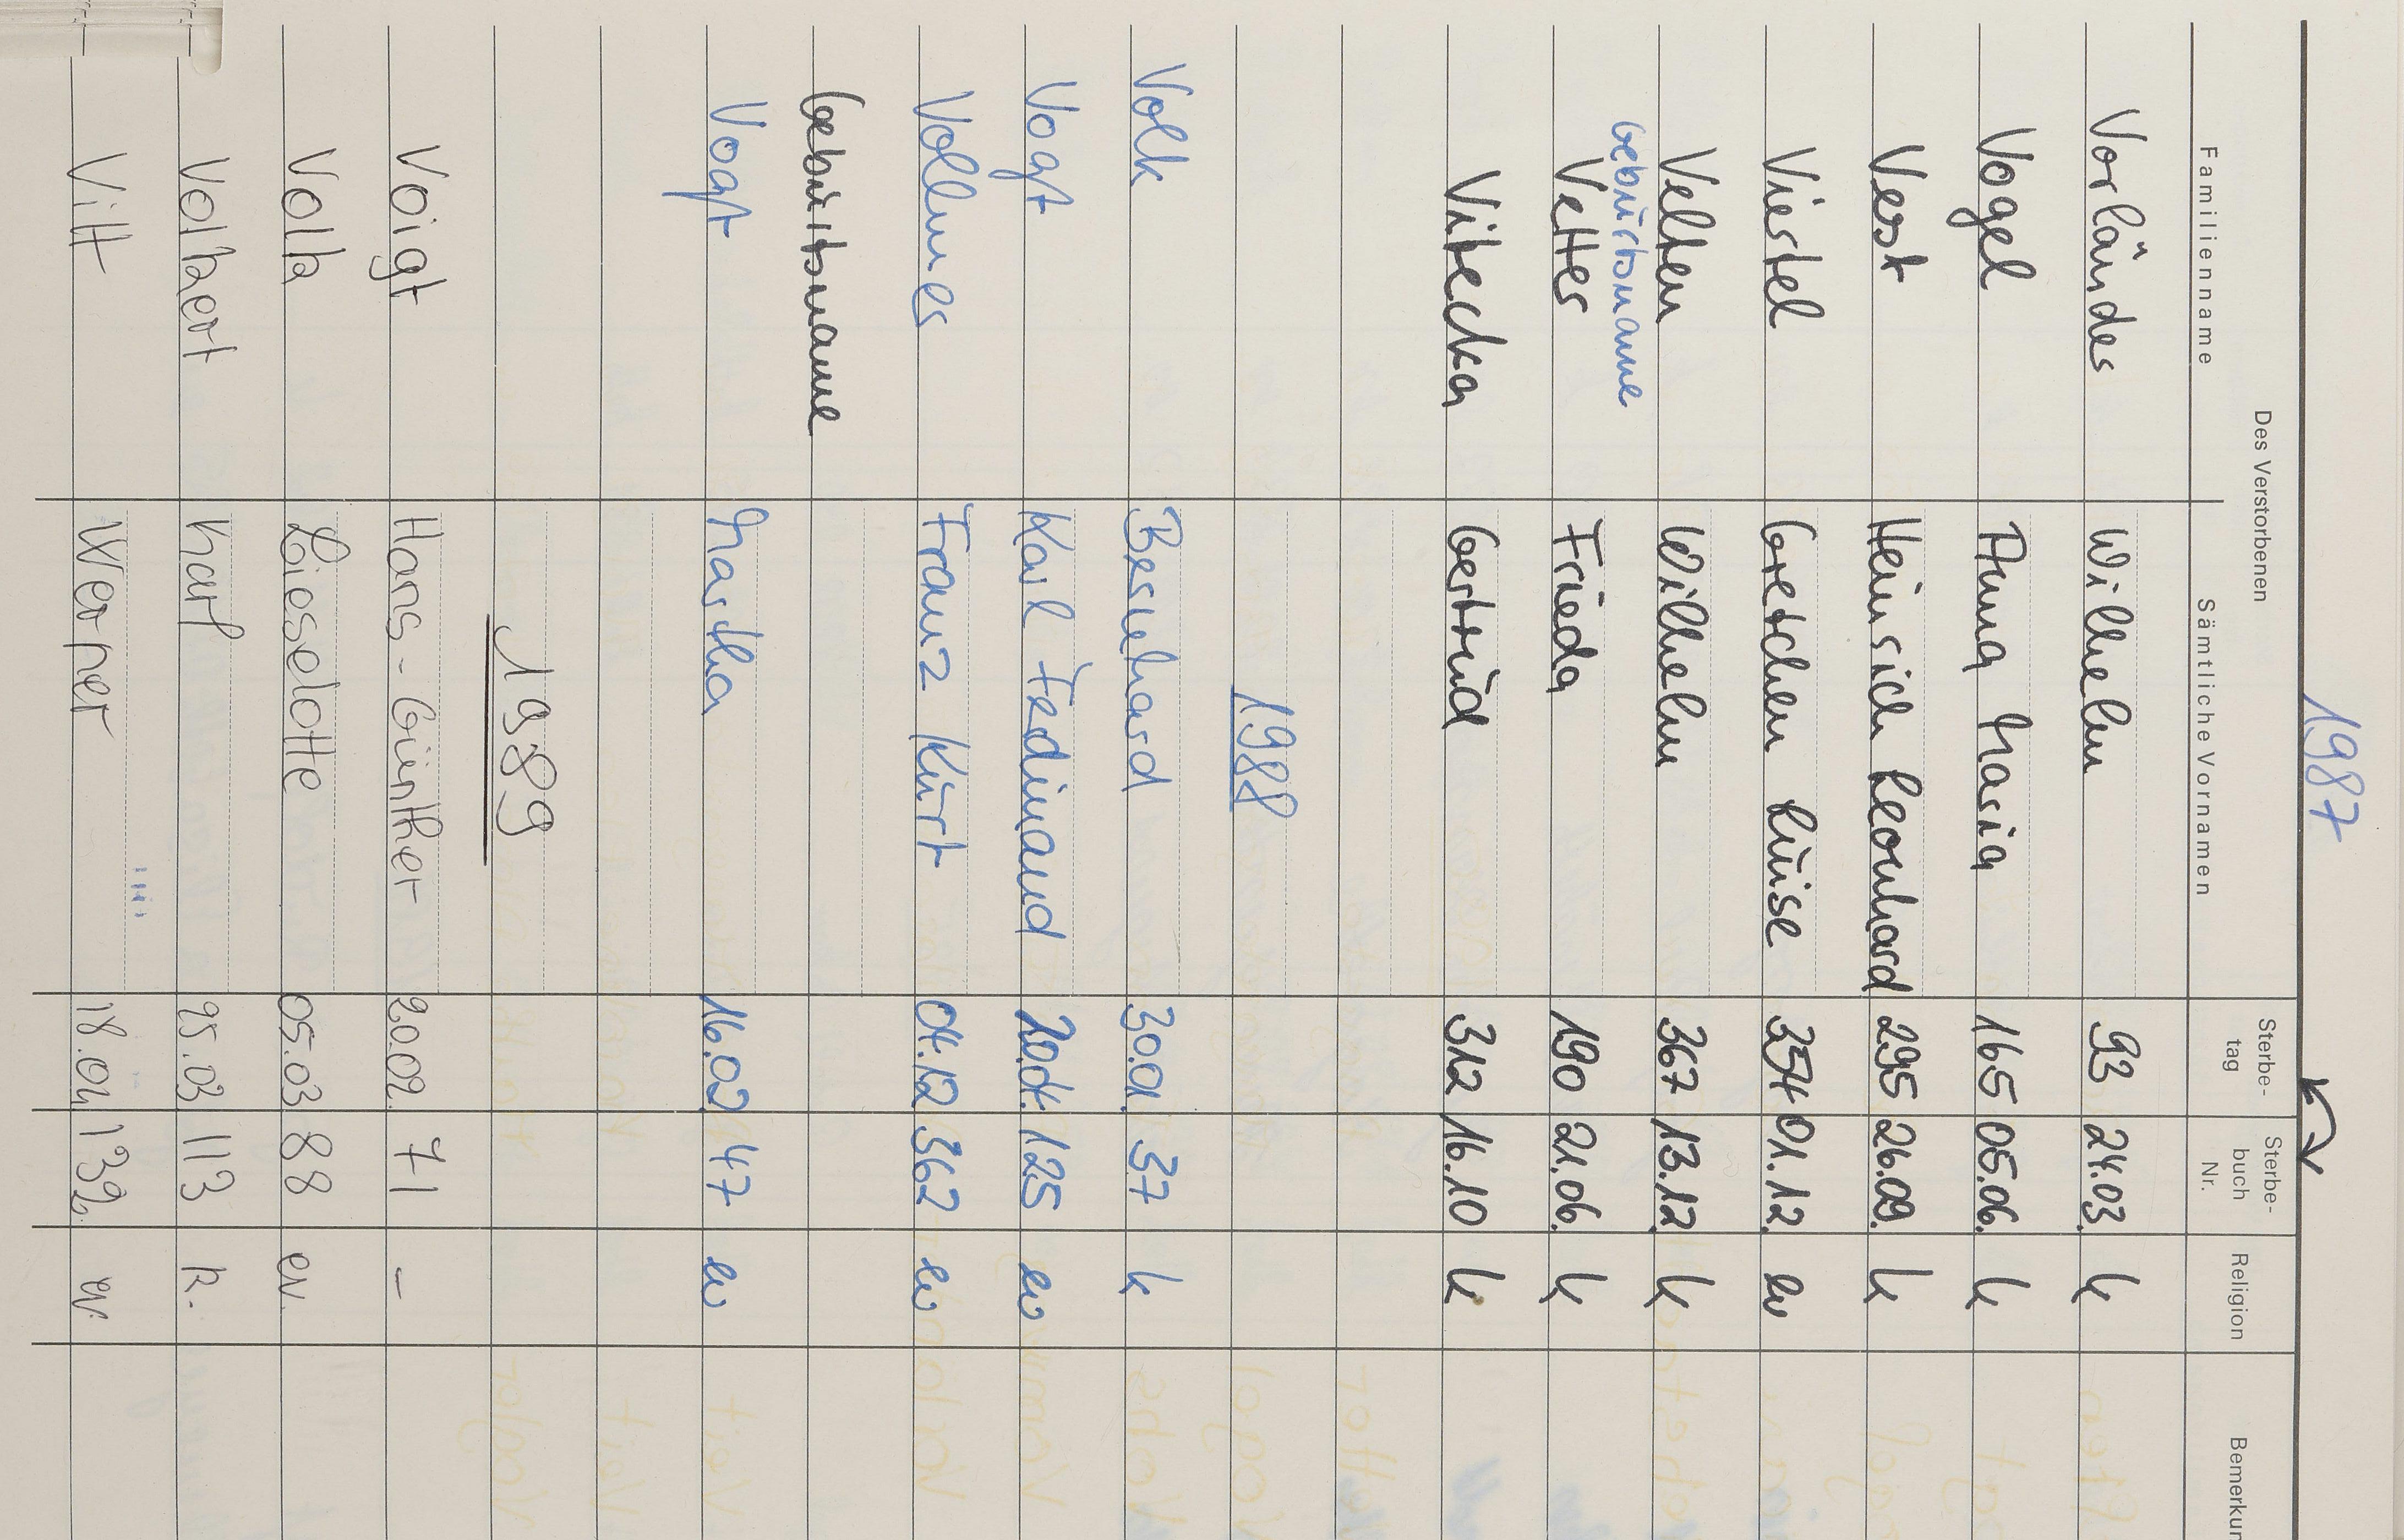 1987
Des Verstorbenen
Familienname Sämtliche Vornamen Sterbe-tag Sterbe-buch Nr. Religion Bemerkun
Vorländer Wilhelm 93 24.03. k
Vogel Anna Maria 165 05.06. k
Vest Heinrich Leonhard 295 26.09. k
Viertel Gretchen Luise 354 01.12. ev
Velten Wilhelm 367 13.12. k
Geburtsname
Vetter Frieda 190 21.06. k
Vitecka Gertrud 312 16.10 k
1988
Volk Bernhard 30.01. 37 k
Vogt Karl Ferdinand 20.04. 125 ev
Vollmer Franz Kurt 04.12 362 ev
Geburtsname
Vogt Martha 16.02 47 ev
1989
Voigt Hans-Günther 20.02. 71 –
Volk Lieselotte 05.03 88 ev.
Volkert Karl 25.03 113 k.
Vilt Werner 18.04. 132. ev.